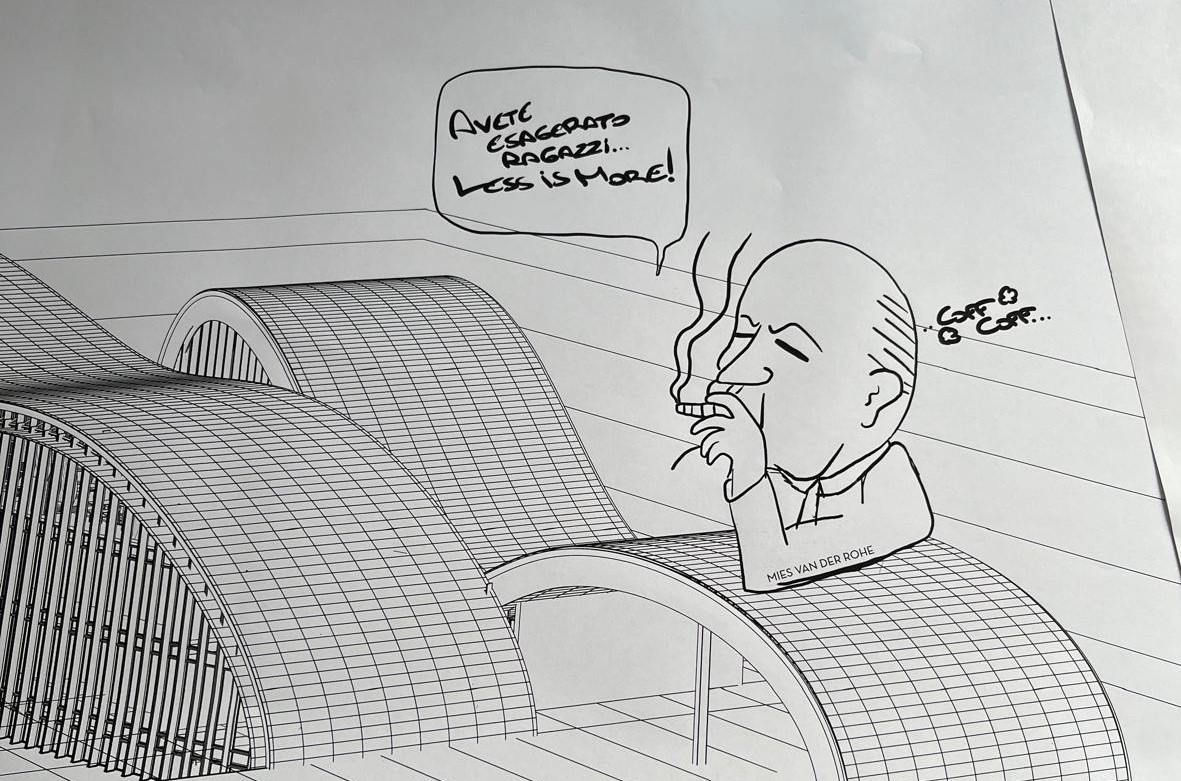 AVETE
ESAGERATO
RAGAZZI...
LESS is MORE!
COFF
COFF...
MIES VAN DER ROHE